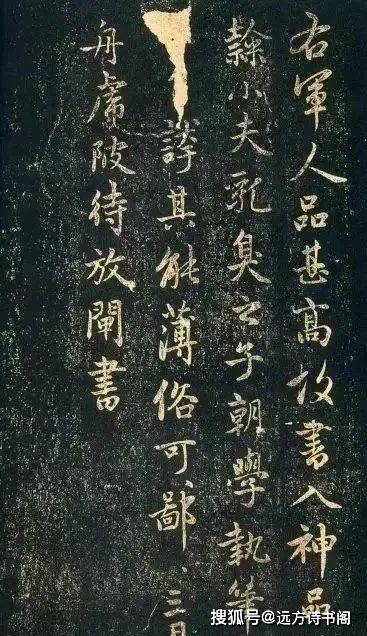 右軍人品甚高故書入神品
隸小夫乳臭之子朝學執筆
誇其能薄俗可鄙〻三日
舟虎陂待放閘書
搜狐号@远方诗书阁